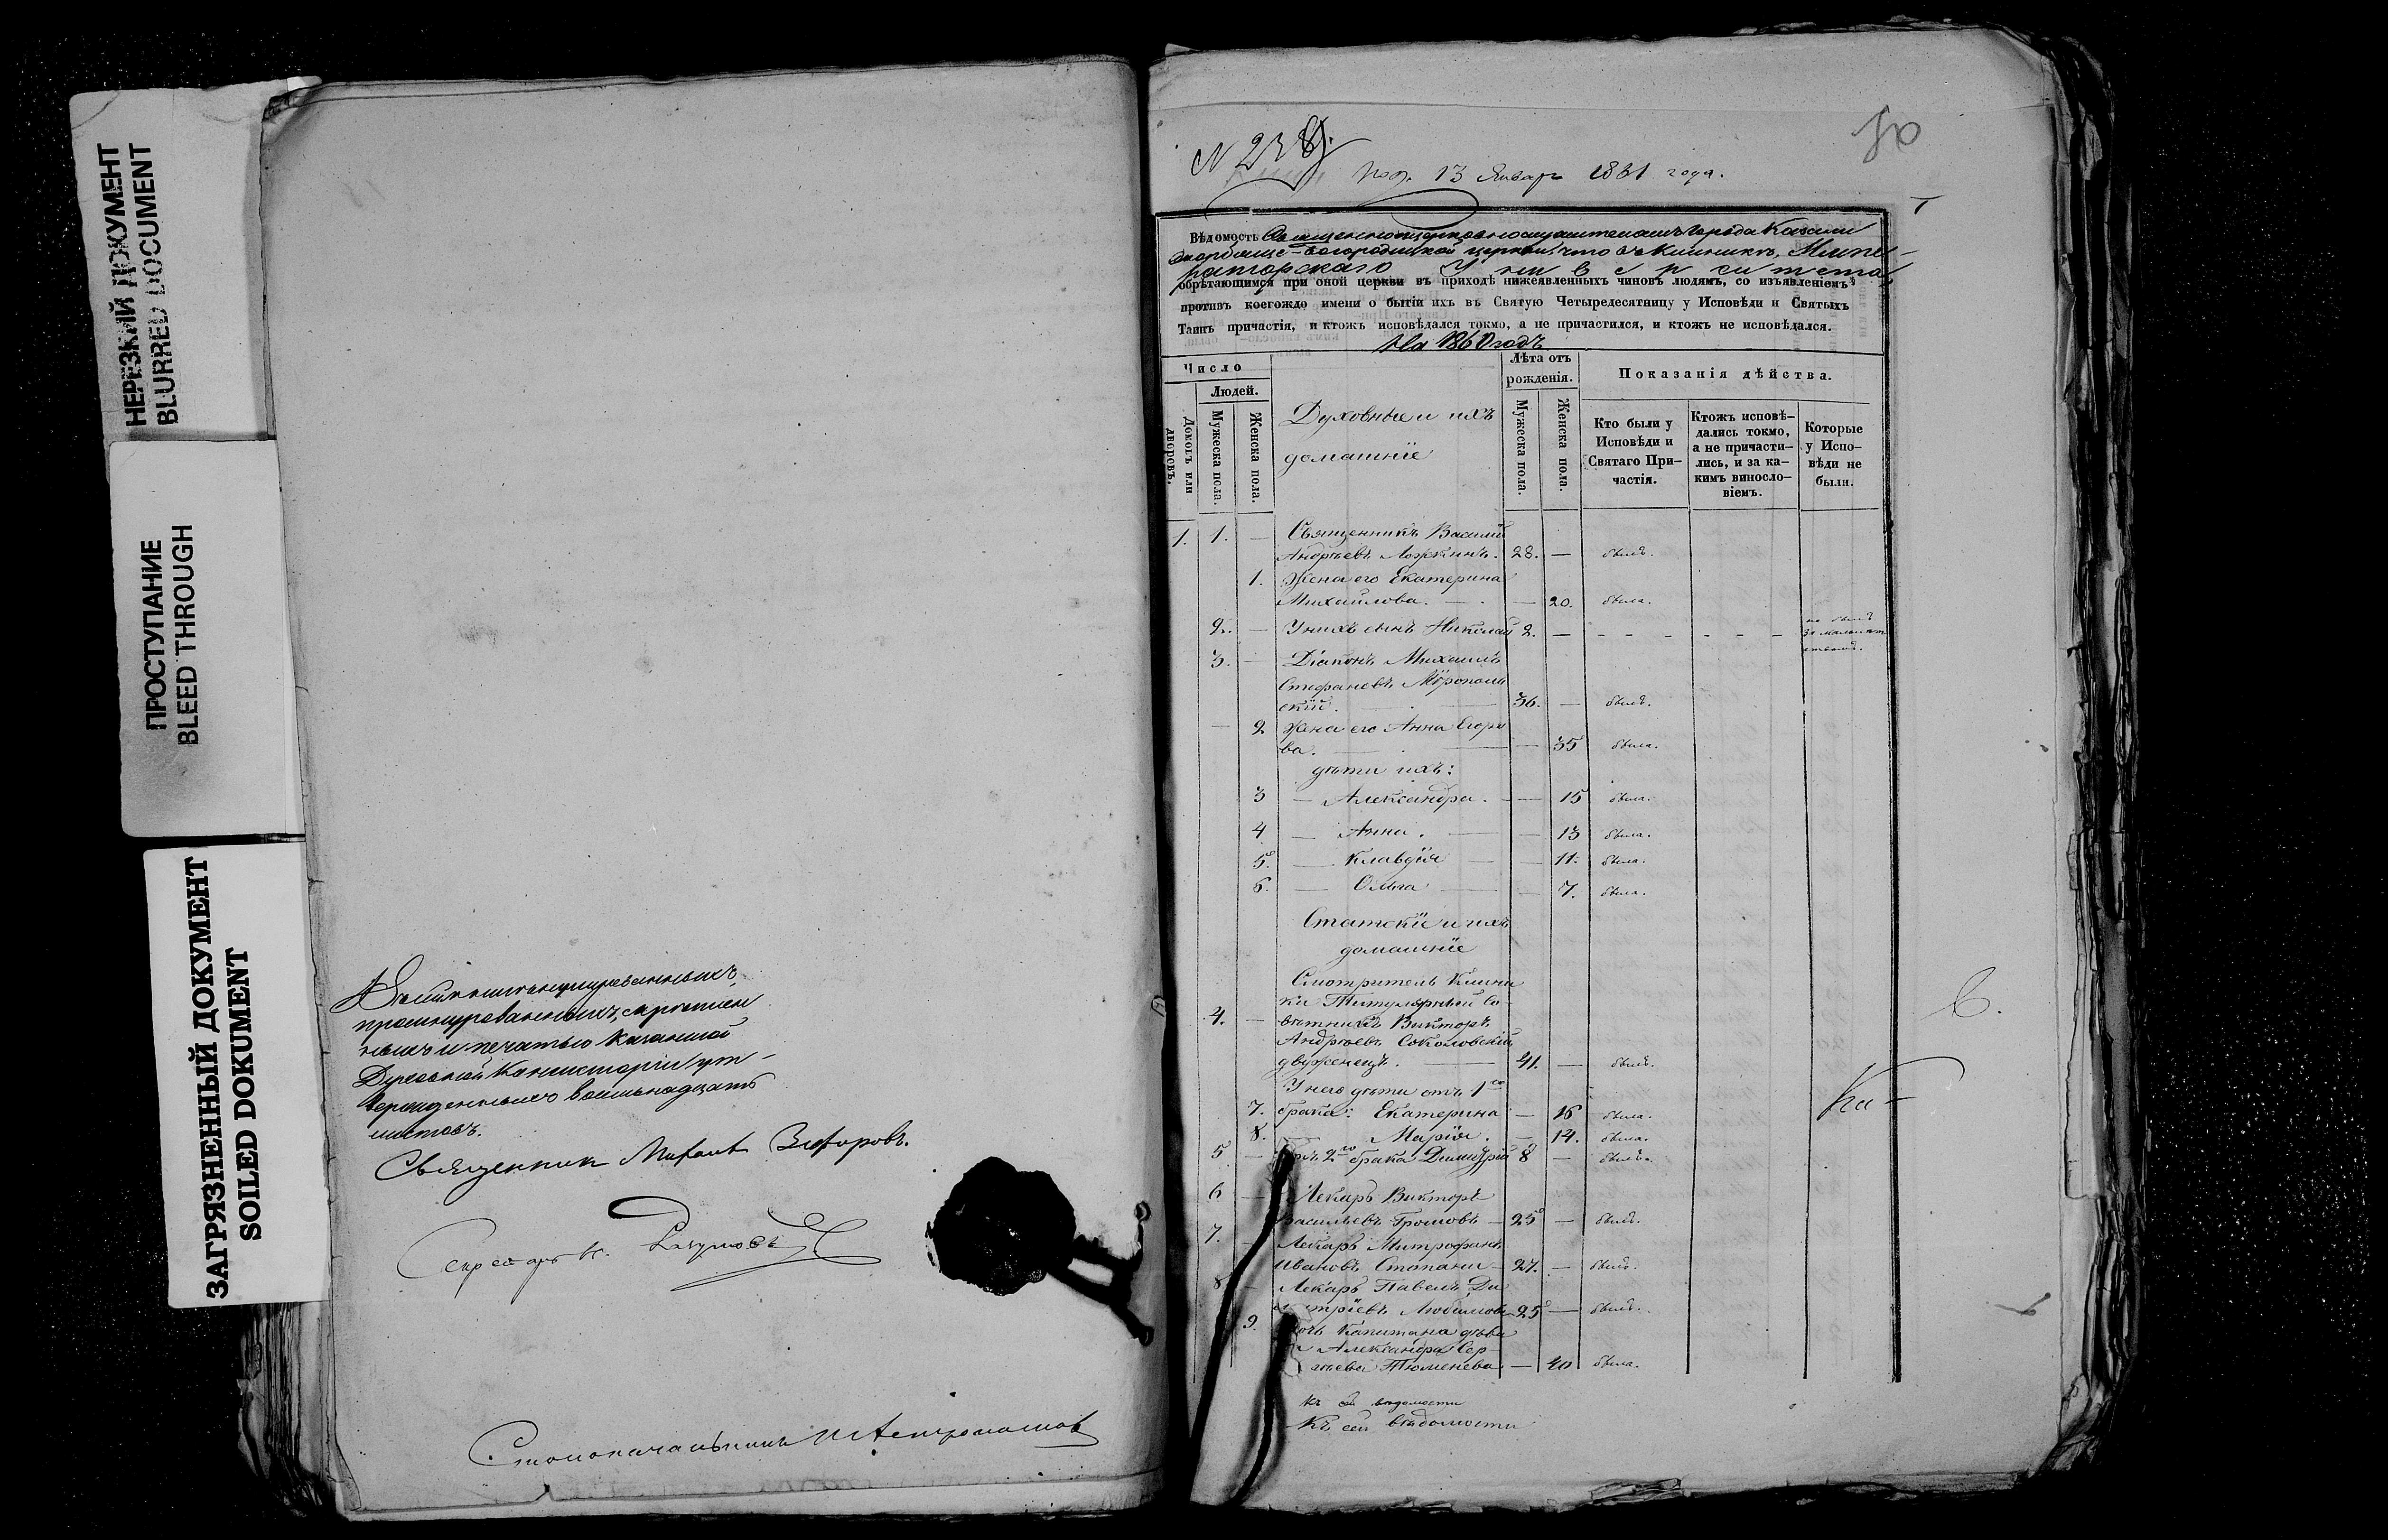 НЕРЕЗКИЙ ДОКУМЕНТ
BLURRED DOCUMENT
ПРОСТУПАНИЕ
BLEED THROUGH
ЗАГРЯЗНЕННЫЙ ДОКУМЕНТ
SOILED DOKUMENT
прошнурованныхъ, скрѣплен
ныхъ и печатью Казанской
Духовной Консисторіи ут-
вержденныхъ восемьнадцать
листовъ.
Священник Зефировъ.
Секретарь Разумовъ
Столоначальникъ
N 238.
13 Январ 1861 года.
Вѣдомость Священноцерковнослужителей города Казани
Скорбяще-Богородицкой церкви, что въ Клиникѣ, Импе-
раторскаго Университета,
обрѣтающимся при оной церкви въ приходѣ нижеявленныхъ чиновъ людямъ, со изъявленіемъ
противъ коегождо имени о бытіи ихъ въ Святую Четыредесятницу у Исповѣди и Святыхъ
Таинъ причастія, и ктожъ исповѣдался токмо, а не причастился, и ктожъ не исповѣдался.
На 1860 годъ
Число
Людей.
Домовъ или дворовъ.
Мужеска пола.
Женска пола.
Духовные и ихъ
домашніе
Лѣта отъ
рожденія.
Мужеска пола.
Женска пола.
Показанія дѣйства.
Кто были у
Исповѣди и
Святаго При-
частія.
Ктожъ исповѣ-
дались токмо,
а не причасти-
лись, и за ка-
кимъ винословіемъ.
Которые
у Испо-
вѣди не
были.
1. 1. — Священникъ Василій
Андреевъ Ложкинъ. 28. — былъ.
1. Жена его Екатерина
Михайлова. — 20. была.
2. — У нихъ сынъ Николай 2. — не былъ
за малолѣт
ствомъ.
3. — Діаконъ Михаилъ
Стефановъ
скій. 36. — былъ.
— 2 Жена его Анна Егоро
ва. — 35 была.
дѣти ихъ:
3 — Александра. — 15 была.
4 — Анна. — 13 была.
5. — Клавдія — 11. была.
6. — Ольга — 7. была.
Статскіе и ихъ
домашніе
Смотритель Клини
ки Титулярный Со-
4. — вѣтникъ Викторъ
Андреевъ Соколовскій
двуженецъ. 41. — былъ.
У него дѣти отъ 1го
7. брака: Екатерина — 16 была.
8. — Марія. — 14. была.
5 — отъ 2го брака Димитрій 8 — былъ.
6 — Лекарь Викторъ
Васильевъ Громовъ — 25 — былъ.
7. — Лекарь Митрофанъ
Ивановъ — 27. — былъ.
8 — Лекарь Павелъ Ди
митріевъ Любимовъ 25 — былъ.
9. Дочь Капитана дѣви
ца Александра Сер-
гѣева Тюменева. — 40 была.
къ сей вѣдомости
Къ сей вѣдомости